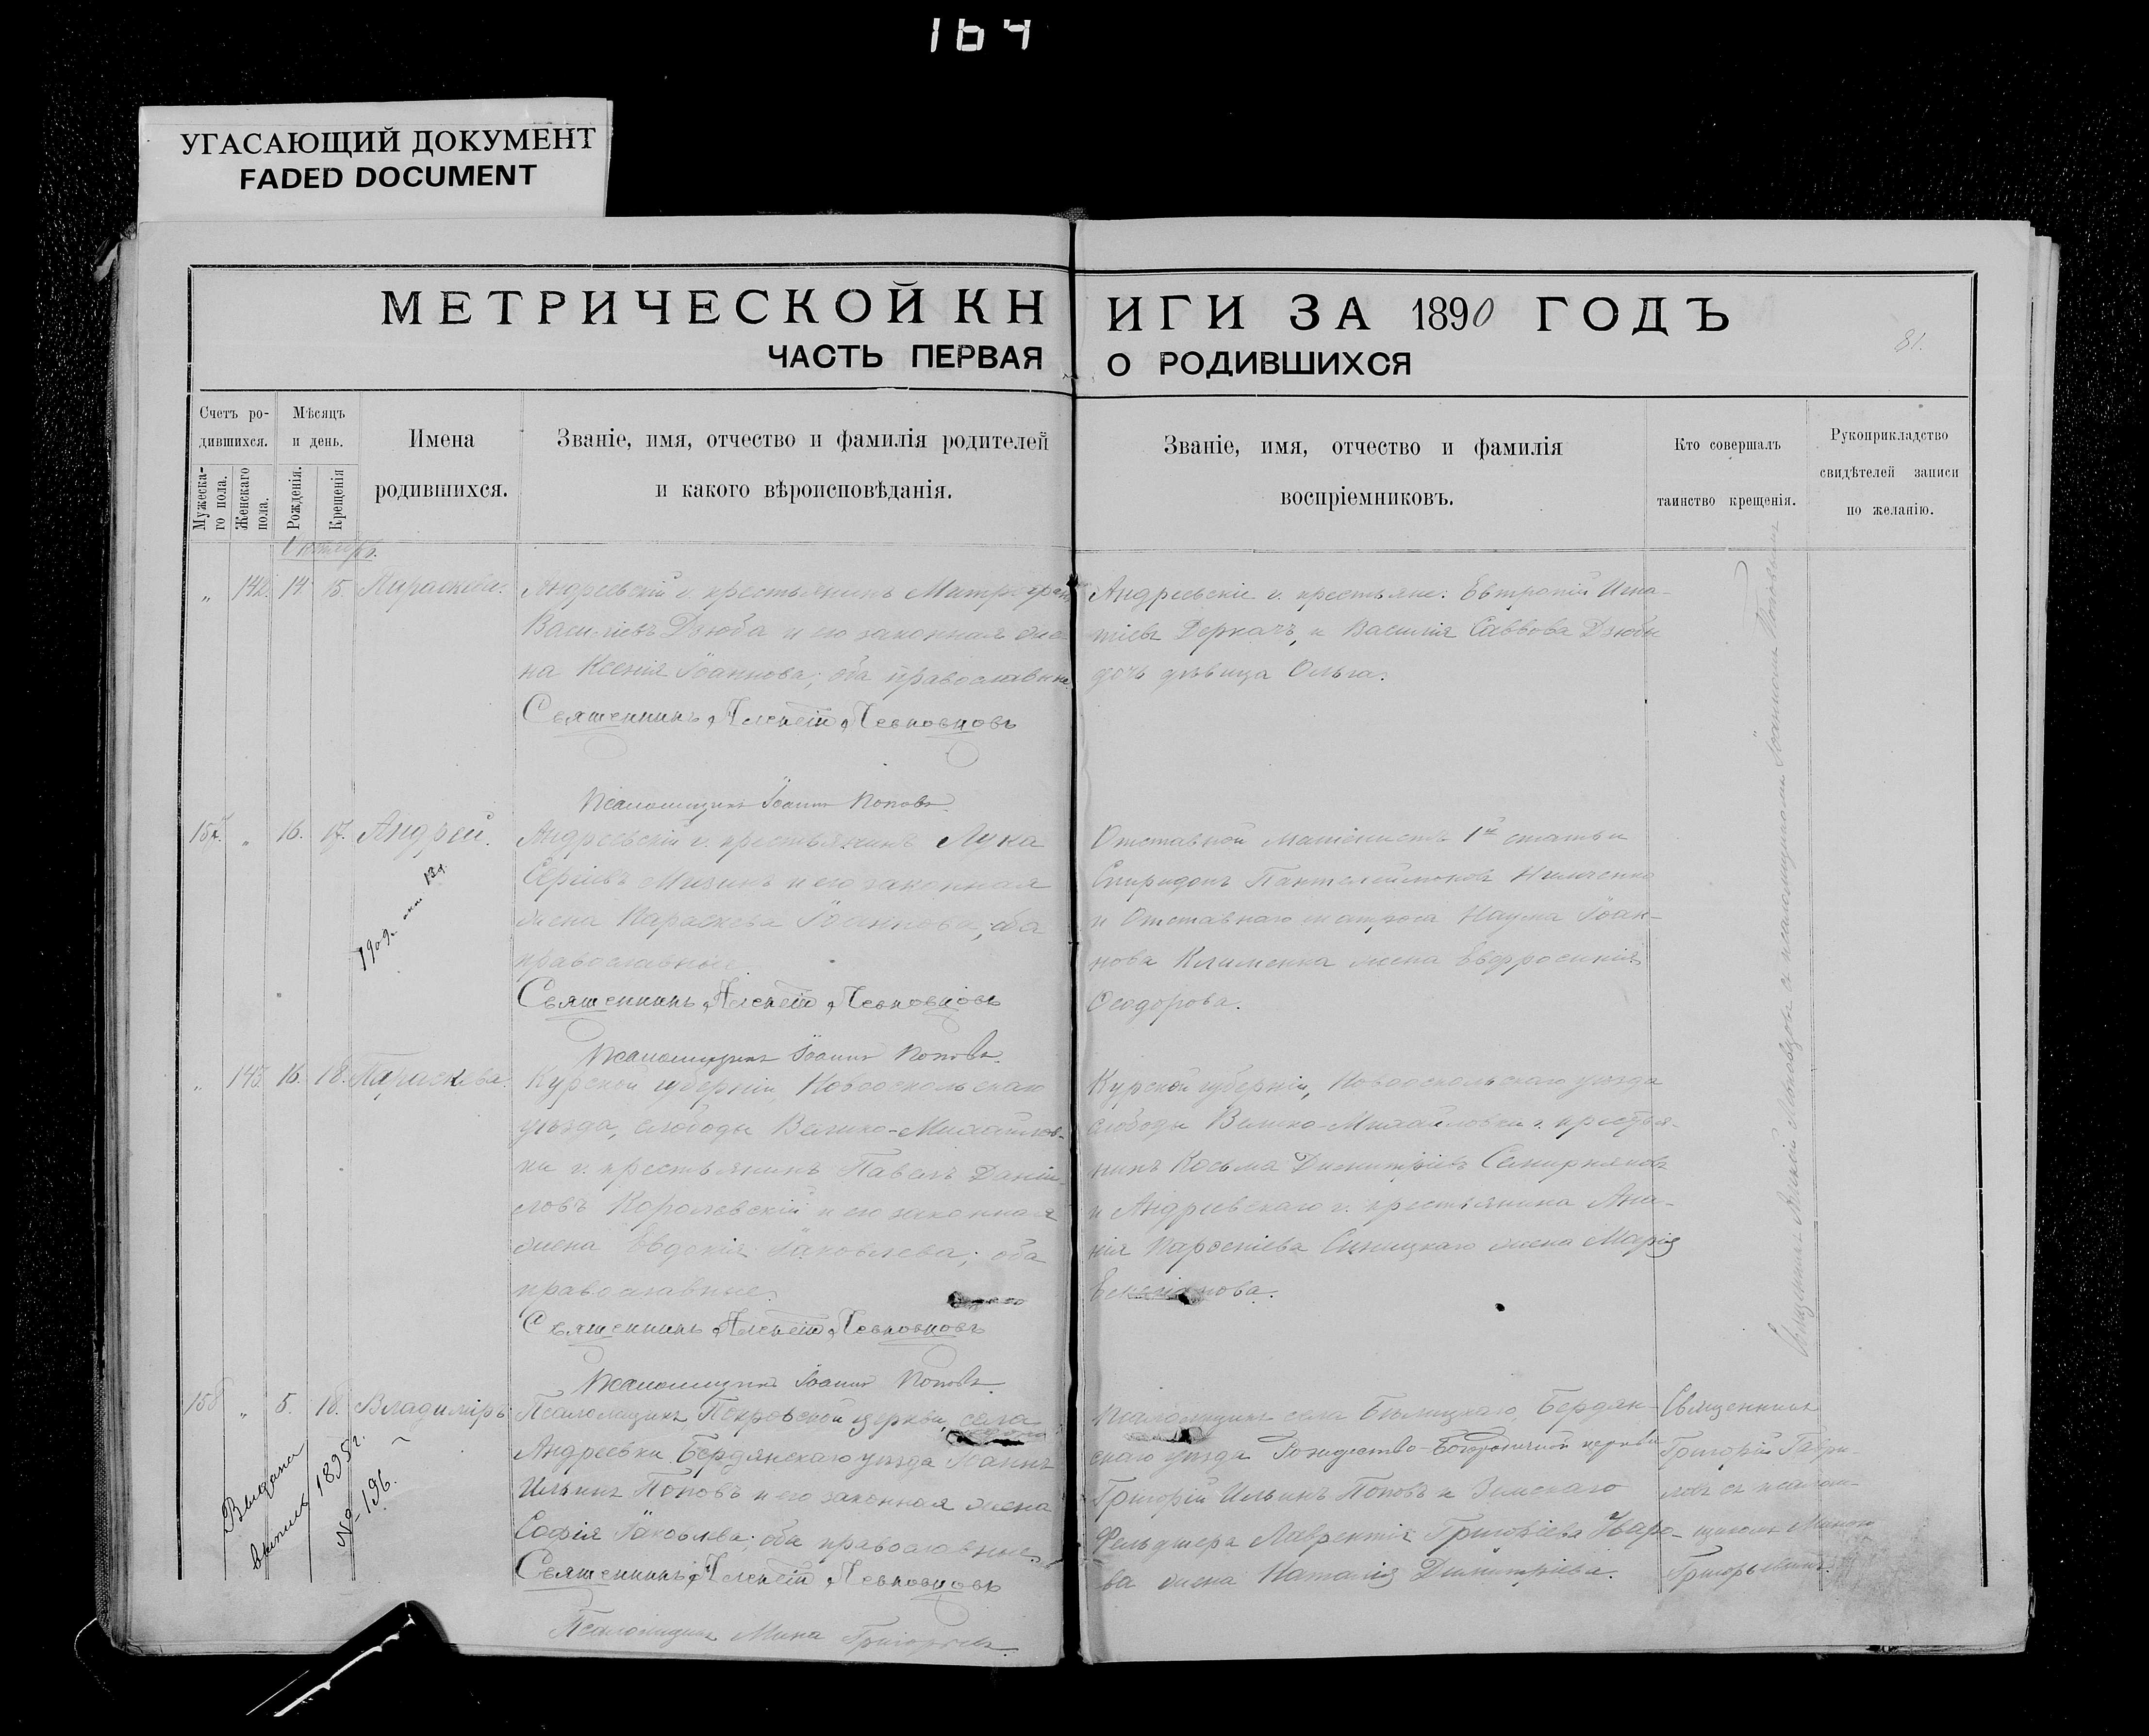 164
УГАСАЮЩИЙ ДОКУМЕНТ
FADED DOCUMENT
МЕТРИЧЕСКОЙ КНИГИ ЗА 1890 ГОДЪ
ЧАСТЬ ПЕРВАЯ О РОДИВШИХСЯ
81.
Счетъ ро-
дившихся.
Мужеска-
го пола.
Женскаго
пола.
Мѣсяцъ
и день.
Рожденія.
Крещенія
Имена
родившихся.
Званіе, имя, отчество и фамилія родителей
и какого вѣроисповѣданія.
Званіе, имя, отчество и фамилія
воспріемниковъ.
Кто совершалъ
таинство крещенія.
Рукоприкладство
свидѣтелей записи
по желанію.
Октябрь.
„ 142. 14. 15.
Андреевскій г. крестьянинъ
Васильевъ Дзюба и его законная же-
на Ксенія Іоаннова; оба православные
Священникъ Алексій Левковцовъ
Псаломщикъ Іоаннъ Поповъ.
Андреевскіе г. крестьяне: Евтропій Игна-
тіевъ Деркачъ, и Василія Саввова Дзюбы
дочь дѣвица Ольга.
157. „ 16. 17. Андрей.
1909
Андреевскій г. крестьянинъ Лука
Сергіевъ и его законная
жена Параскева Іоаннова; оба
православные.
Священникъ Алексій Левковцовъ
Псаломщикъ Іоаннъ Поповъ.
Отставной 1й статьи
Спиридонъ Пантелеймоновъ
и Отставнаго матроса Наума Іоан-
нова Клименка жена Евфросинія
Ѳеодорова.
„ 143. 16. 18. Параскева.
Курской губерніи, Новооскольскаго
уѣзда, слободы Велико-Михайлов-
ки г. крестьянинъ Павелъ Даніи-
ловъ Королевскій и его законная
жена Евдокія Іаковлева; оба
православные.
Священникъ Алексій Левковцовъ
Псаломщикъ Іоаннъ Поповъ.
Курской губерніи, Новооскольскаго уѣзда
слободы Велико-Михайловки г. крестья-
нинъ Косьма Димитріевъ
и Андреевскаго г. крестьянина Ана-
нія Парѳеніева Синицкаго жена Марія
158 „ 5. 18. Владиміръ.
Выдана
выпись 1895 г.
№ 196.
Псаломщикъ Покровской церкви, села
Андреевки Бердянскаго уѣзда Іоаннъ
Ильинъ Поповъ и его законная жена
Софія Іаковлева; оба православные.
Священникъ Алексій Левковцовъ
Псаломщикъ Мина Григорьевъ.
Псаломщикъ села Бѣлицкаго, Бердян-
скаго уѣзда Рождество-Богородичной церкви
Григорій Ильинъ Поповъ и Земскаго
Фельдшера Лаврентія Григоріева
жена Наталія Димитріева.
Священникъ
Григорій Гаври-
ловъ съ псалом-
щикомъ Миною
Григорьевымъ.
Священникъ Алексій Левковцовъ съ псаломщикомъ Іоанномъ Поповымъ